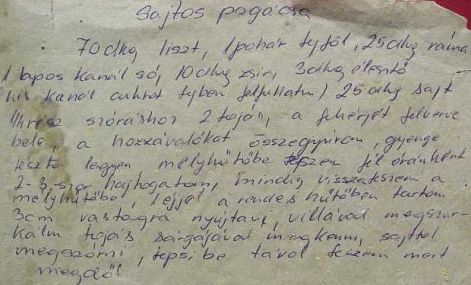 Sajtos pogácsa
70dkg liszt, 1 pohár tejföl, 25dkg ráma
1 lapos kanál só, 10dkg zsír, 3dkg élesztő
1 kis kanál cukrot tejben felfuttatni) 25dkg sajt
szóráshoz 2 tojás, a fehérjét felverve
bele, a hozzávalókat összegyúrom, gyenge
tészta legyen mélyhűtőbe teszem fél óránként
2-3-szor hajtogatom, mindig visszateszem a
mélyhűtőbe, éjjel a rendes hűtőben tartom
3cm vastagra nyujtani, villával megszur-
kálni tojás sárgájával megkenni, sajttal
megszórni, tepsibe távol teszem mert
megdől